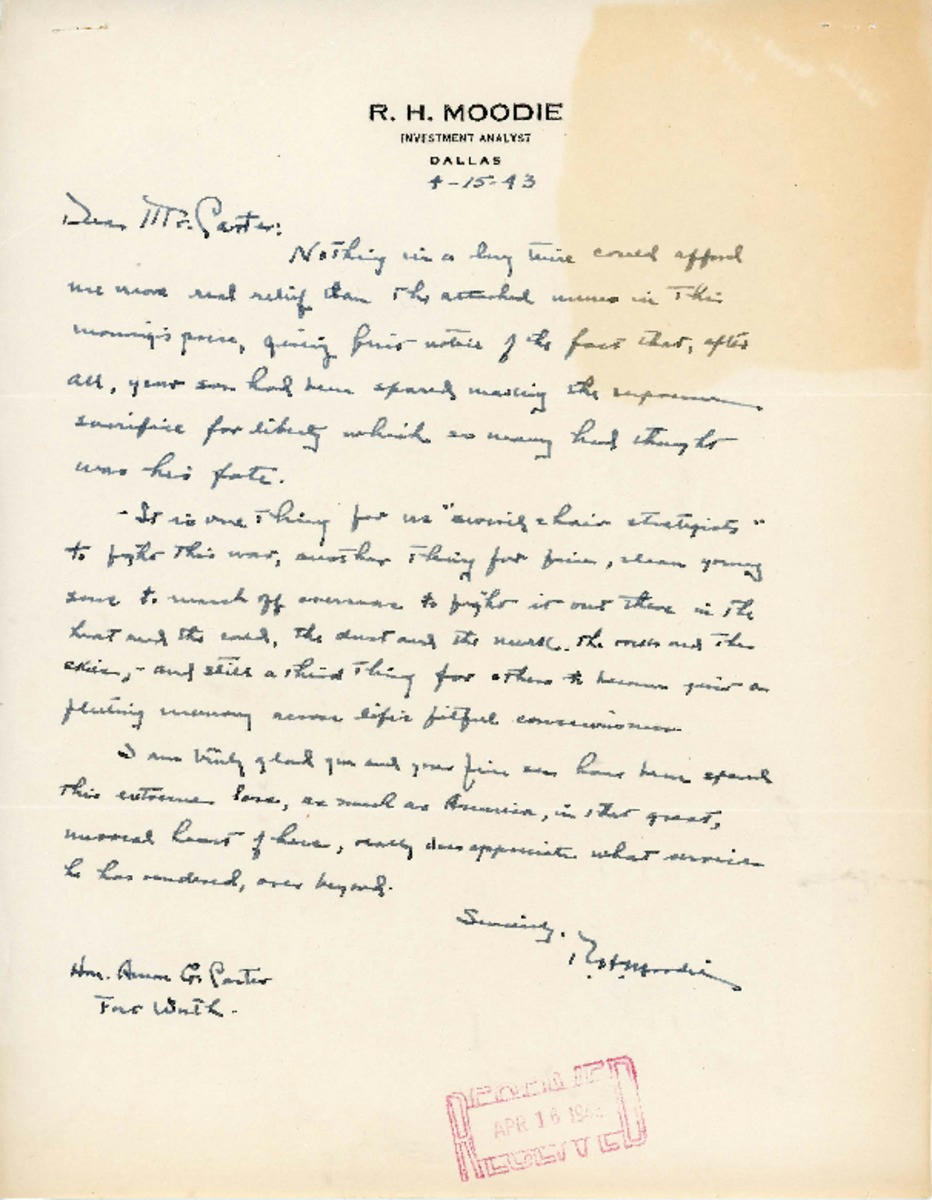 R. H. MOODIE
INVESTMENT ANALYST
DALLAS
4-15-43
Dear Mr. Carter:
Nothing in a long time could afford
me more real relief than the attached news in this
morning's press, giving first notice of the fact that, after
all, your son had been spared making the supreme
sacrifice for liberty which so many had thought
was his fate.
- It is one thing for us "swivel chair strategists"
to fight this war, another thing for fine, clean young
sons to march off overseas to fight it out there in the
heat and the cold, the dust and the muck, the and the
skies, - and still a third thing for others to become just a
fleeting memory across life's fitful consciousness.
I am truly glad you and your fine son have been spared
this extreme loss, as much as America, in that great,
heart of hers, really does appreciate what service
he has rendered, over beyond.
Sincerely,
R H Moodie
Hon. Amon G. Carter
Fort Worth.
APR 16 194